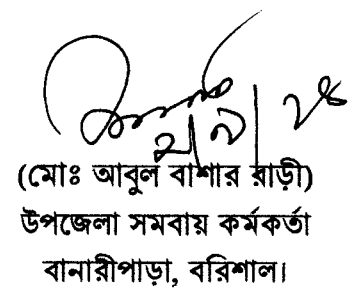 (মোঃ আবুল বাশার রাড়ী)
উপজেলা সমবায় কর্মকর্তা
বানারীপাড়া, বরিশাল।